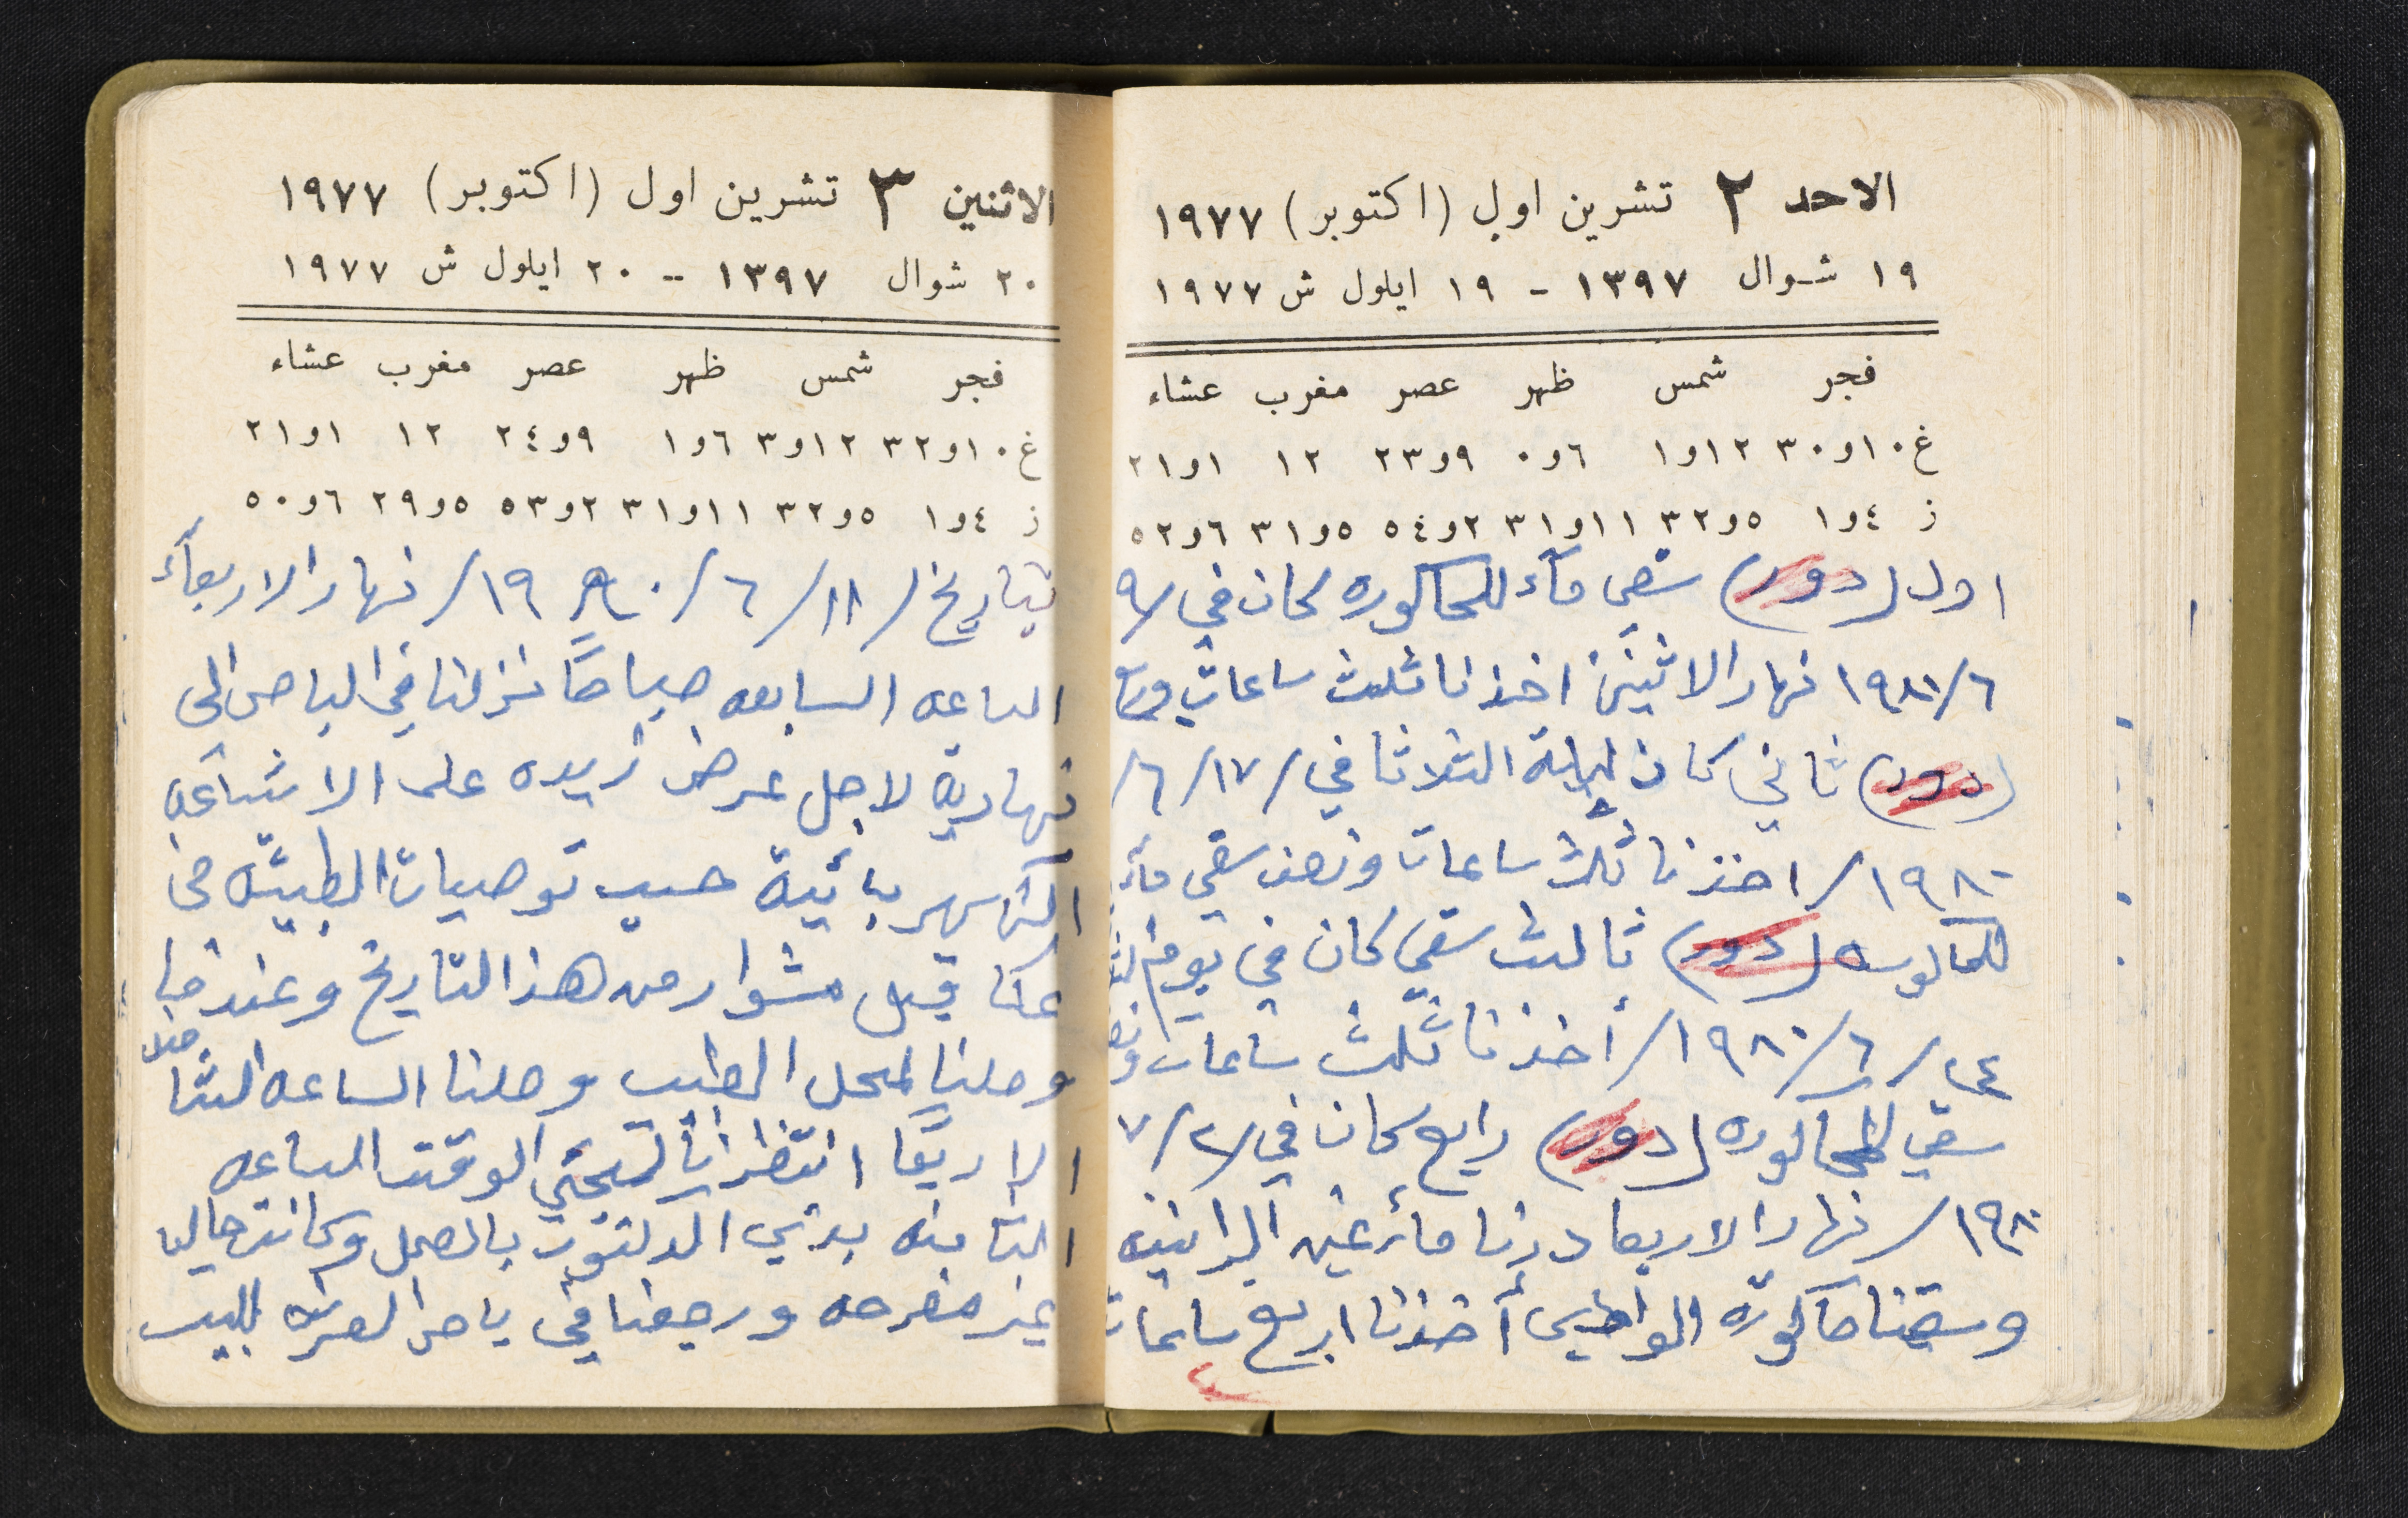 الاحد ٢ تشرين اول (اكتوبر) ١٩٧٧
١٩ شوال ١٣٩٧ - ١٩ ايلول ش ١٩٧٧
فجر شمس ظهر عصر مغرب عشاء
غ ١٠و٣٠ ١٢و١ ٦و٠ ٩و٢٣ ١٢ ١و٢١
ز ٤و١ ٥و٣٢ ١١و٣١ ٢و٥٤ ٥و٣١ ٦و٥٢
اول (دور) سقي مآء للحاكوره كان في /٩
٦/١٩٨٠ نهار الاثنين اخذنا ثلث ساعات وربع
(دور) ثاني كان ليلة الثلاثا في /١٧/٦/
١٩٨٠/ اخذنا ثلث ساعات ونصف سقي مآء
للحاكوره (دور) ثالث سقي كان في يوم
٢٤/٦/١٩٨٠/ أخذنا ثلث ساعات
سقي للحاكوره (دور) رابع كان في /٢/٧
١٩٨٠/ نهار الاربعا دزنا مآء عين البرانيه
وسقينا حاكورة الواطيى أخذنا اربع ساعات
الاثنين ٣ تشرين اول (اكتوبر) ١٩٧٧
٢٠ شوال ١٣٩٧ -- ٢٠ ايلول ش ١٩٧٧
فجر شمس ظهر عصر مغرب عشاء
غ ١٠و٣٢ ١٢و٣ ٦و١ ٩و٢٤ ١٢ ١و٢١
ز ٤و١ ٥و٣٢ ١١و٣١ ٢و٥٣ ٥و٢٩ ٦و٥٠
بتاريخ /١١/٦/١٩٨٠/ نهار الاربعآء
الساعه السابعه صباحاً نزلنا في الباص الى
نهاريه لاجل عرض زيده على الاشاعه
الكهربائية حسب توصيات الطبيبه في
عكا قبل مشوار من هذا التاريخ وعندما
وصلنا لمحل الطبيب وصلنا الساعه الثامنه
الا ربعا انتظرنا لييجي الوقت الساعه
الثامنه بدي الدكتور بالعمل وكانت حاليا
غير مفرحه ورجعنا في باص العرب للبيت